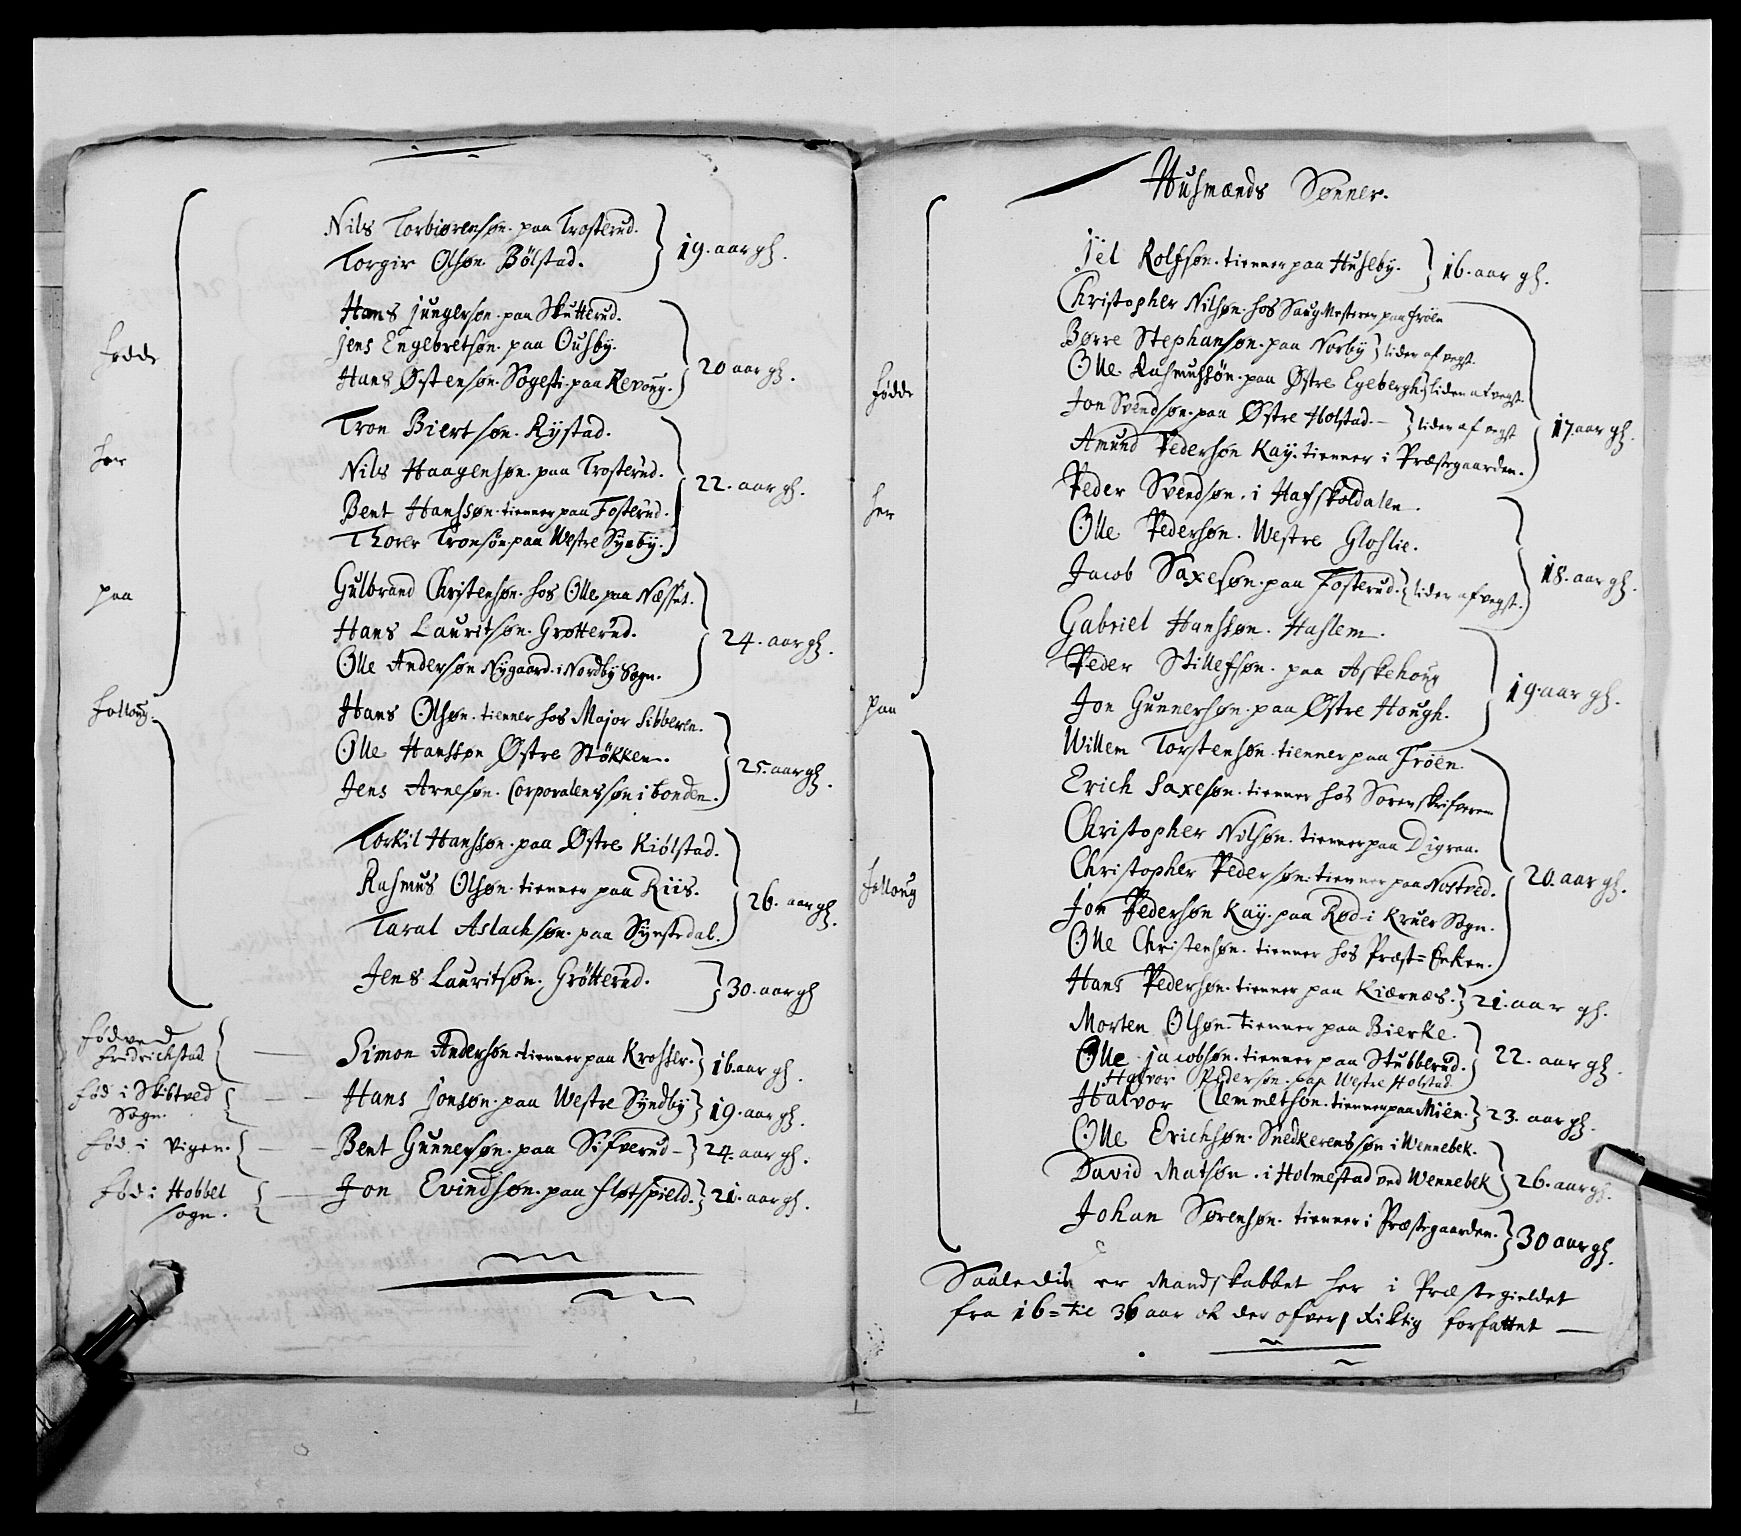 Nils Torbiørensøn. paa Trosterud.
Torgir Olsøn. Bölstad. } 19. aar gl.
Hans jungersøn. paa Skutterud.
jens Engebretsøn. paa Ousby.
Hans Østensøn. Sogesti. paa Revoug. } 20 aar gl.
Tron Biertsøn. Rystad.
Nils Haagensøn. paa Trosterud.
Bent Hanssøn. tienner paa Fosterud. } 22. aar gl.
Thorer Tronsøn. paa Westre Synby.
Gulbrand Christensøn. hos Olle paa Næsset.
Hans Lauritsøn. Grøtterud.
Olle Andersøn Nygaard. i Nordby Sogn. } 24. aar gl.
Hans Olsøn. tienner hos Major Sibberen.
Olle Hanssøn Østre Støkken.
Jens Arnesøn. Corporalens søn i bonden. } 25. aar gl.
Torkil Hanssøn. paa Østre Kiølstad.
Rasmus Olsøn. tienner paa Riis.
Taral Aslachsøn. paa Synstedal. } 26. aar gl.
Jens Lauritsøn. Gröttérud. } 30. aar gl
fødde
her
paa
folloug.
fød ved
fridrichstad } Simon Andersøn. tienner paa Krosser. } 16. aar gl.
fød i Skibtved
Sogn. } Hans jonsøn. paa Westre Syndby } 19. aar gl.
fød. i Vigen. } Bent Gunnersøn. paa Sifverud } 24. aar gl.
fød i Hobbel
sogn. } Jon Evindsøn. paa fløtspield. } 21. aar gl.
Husmænds Sønner.
jël Rolfsøn. tienner paa Husleby. } 16. aar gl.
Christopher Nilsøn. hos Saug Mesteren paa frøen
Børre Stephansøn. paa Norby } liden af vegst.
Olle Rasmussøn. paa Østre Egebergh. } liden af vegst.
Jon Svendsøn. paa Østre Holstad. } liden af vegst } 17. aar gl.
Amund Pedersøn Kay. tienner i Præstegaarden.
Peder Svendsøn. i Hafskoldalen.
Olle Pedersøn. Westre Gloslie.
Jacob Saxesøn. paa Fosterud. } liden af vegst. } 18. aar gl.
Gabriel Hanssøn. Haslem.
Peder Stillefsøn. paa Askehoug
Jon Gunnersøn. paa Østre Hough. } 19. aar gl.
Willem Torstensøn. tienner paa Frøen.
Erich Saxesøn. tienner hos Sorenskrifveren
Christopher Nilsøn. tienner paa Digraa.
Christopher Pedersøn. tienner paa Nostved. } 20. aar gl.
Jon Pedersøn Kay. paa Rød i Kruer Sogn.
Olle Christensøn. tienner hos Præst= Enken.
Hans Pedersøn. tienner paa Kiærnæs. } 21. aar gl.
Morten Olsøn. tienner paa Bierke.
Olle jacobsøn. tienner paa Stubberud. } 22. aar gl.
Hafvor Pedersøn. paa Westre Holstad
Halvor Clemmetsøn. tienner paa Mien. } 23. aar gl.
Olle Erichsøn. Snedkerens søn i Wennebek.
David Matsøn. i Holmestad ved Wennebek } 26. aar gl.
Johan Sørensøn. tienner i Præstegaarden. } 30 aar gl.
fødde
her
paa
folloug
Saaledis er Mandskabbet her i Præstegieldet
fra 16= til 36 aar ok der ofver, Riktig forfattet